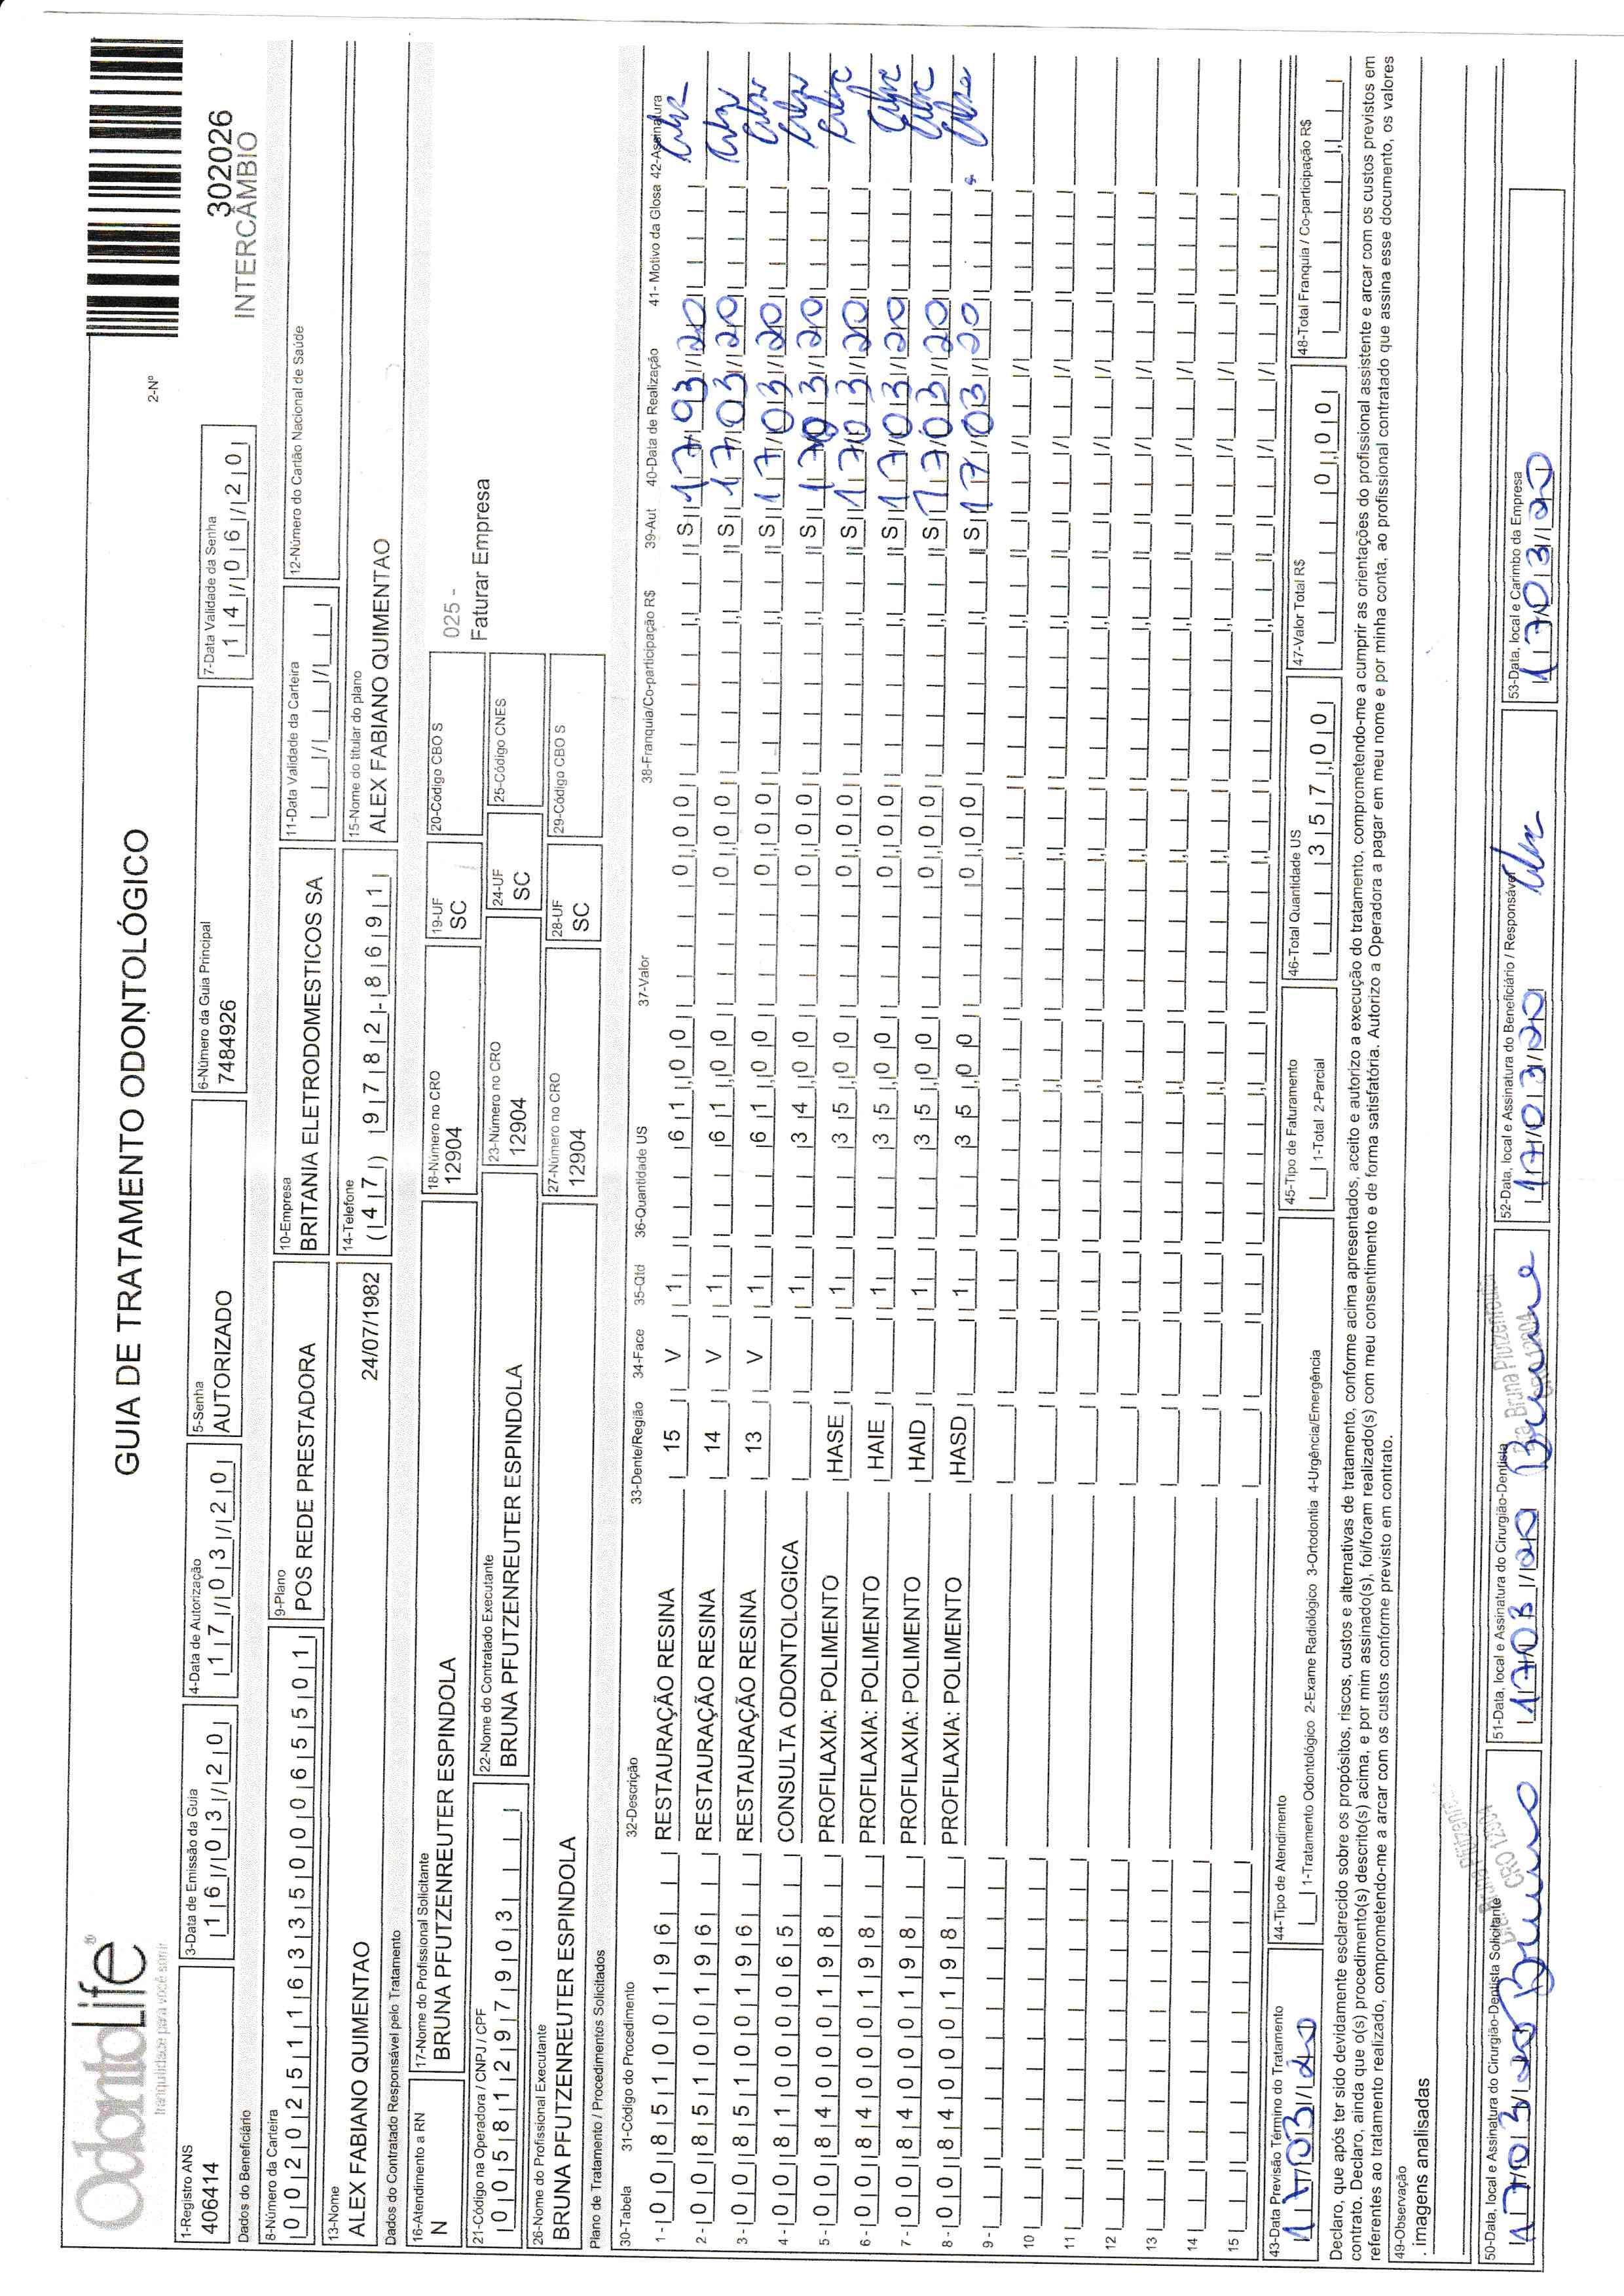 OdontoLife®
tranquilidade para você sorrir
GUIA DE TRATAMENTO ODONTOLÓGICO
2-Nº
302026
INTERCÂMBIO
1-Registro ANS
406414
3-Data de Emissão da Guia
16/03/20
4-Data de Autorização
17/03/20
5-Senha
AUTORIZADO
6-Número da Guia Principal
7484926
7-Data Validade da Senha
14/06/20
Dados do Beneficiário
8-Número da Carteira
00202511633500065501
9-Plano
POS REDE PRESTADORA
10-Empresa
BRITANIA ELETRODOMESTICOS SA
11-Data Validade da Carteira
12-Número do Cartão Nacional de Saúde
13-Nome
ALEX FABIANO QUIMENTAO
24/07/1982
14-Telefone
(47) 97782-8691
15-Nome do titular do plano
ALEX FABIANO QUIMENTAO
Dados do Contratado Responsável pelo Tratamento
16-Atendimento a RN
N
17-Nome do Profissional Solicitante
BRUNA PFUTZENREUTER ESPINDOLA
18-Número no CRO
12904
19-UF
SC
20-Código CBO S
025 -
Faturar Empresa
21-Código na Operadora / CNPJ / CPF
00581297903
22-Nome do Contratado Executante
BRUNA PFUTZENREUTER ESPINDOLA
23-Número no CRO
12904
24-UF
SC
25-Código CNES
26-Nome do Profissional Executante
BRUNA PFUTZENREUTER ESPINDOLA
27-Número no CRO
12904
28-UF
SC
29-Código CBO S
Plano de Tratamento / Procedimentos Solicitados
30-Tabela 31-Código do Procedimento 32-Descrição 33-Dente/Região 34-Face 35-Qtd 36-Quantidade US 37-Valor 38-Franquia/Co-participação R$ 39-Aut 40-Data de Realização 41- Motivo da Glosa 42-Assinatura
1 - 00 85100196 RESTAURAÇÃO RESINA 15 V 1 61,00 0,00 S 17/03/20
2 - 00 85100196 RESTAURAÇÃO RESINA 14 V 1 61,00 0,00 S 17/03/20
3 - 00 85100196 RESTAURAÇÃO RESINA 13 V 1 61,00 0,00 S 17/03/20
4 - 00 81000065 CONSULTA ODONTOLOGICA 1 34,00 0,00 S 17/03/20
5 - 00 84000198 PROFILAXIA: POLIMENTO HASE 1 35,00 0,00 S 17/03/20
6 - 00 84000198 PROFILAXIA: POLIMENTO HAIE 1 35,00 0,00 S 17/03/20
7 - 00 84000198 PROFILAXIA: POLIMENTO HAID 1 35,00 0,00 S 17/03/20
8 - 00 84000198 PROFILAXIA: POLIMENTO HASD 1 35,00 0,00 S 17/03/20
9 -
10
11
12
13
14
15
43-Data Previsão Término do Tratamento
17/03/20
44-Tipo de Atendimento
1-Tratamento Odontológico 2-Exame Radiológico 3-Ortodontia 4-Urgência/Emergência
45-Tipo de Faturamento
1-Total 2-Parcial
46-Total Quantidade US
357,00
47-Valor Total R$
0,00
48-Total Franquia / Co-participação R$
Declaro, que após ter sido devidamente esclarecido sobre os propósitos, riscos, custos e alternativas de tratamento, conforme acima apresentados, aceito e autorizo a execução do tratamento, comprometendo-me a cumprir as orientações do profissional assistente e arcar com os custos previstos em
contrato. Declaro, ainda que o(s) procedimento(s) descrito(s) acima, e por mim assinado(s), foi/foram realizado(s) com meu consentimento e de forma satisfatória. Autorizo a Operadora a pagar em meu nome e por minha conta, ao profissional contratado que assina esse documento, os valores
referentes ao tratamento realizado, comprometendo-me a arcar com os custos conforme previsto em contrato.
49-Observação
. imagens analisadas
50-Data, local e Assinatura do Cirurgião-Dentista Solicitante
17/03/20 Bruna
CRO 12904
51-Data, local e Assinatura do Cirurgião-Dentista
17/03/20 Bruna
Dra. Bruna Pfutzenreuter
CRO 12904
52-Data, local e Assinatura do Beneficiário / Responsável
17/03/20
53-Data, local e Carimbo da Empresa
17/03/20